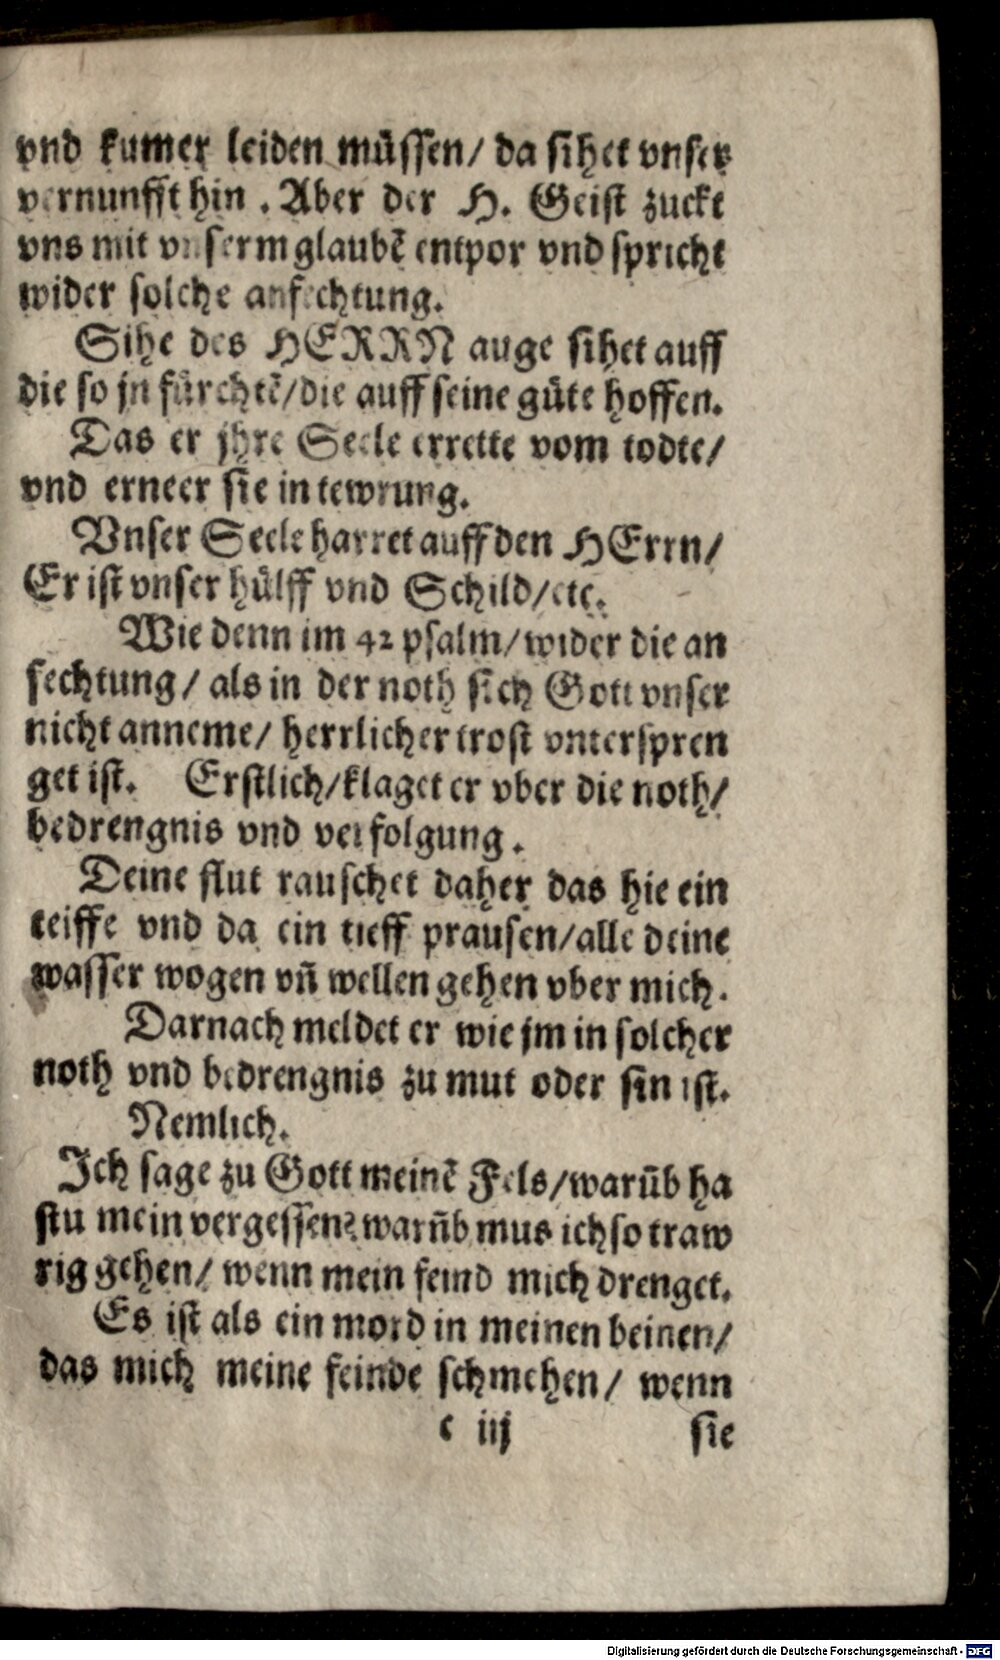 vnd kumer leiden müssen/ da sihet vnser
vernunfft hin . Aber der H. Geist zuckt
vns mit vnserm glaubē entpor vnd spricht
wider solche anfechtung.
Sihe des HERRN auge sihet auff
die so jn fürchtē/die auff seine güte hoffen.
Das er jhre Seele errette vom todte/
vnd erneer sie in tewrung.
Vnser Seele harret auff den HErrn/
Er ist vnser hülff vnd Schild/etc.
Wie denn im 42 psalm/wider die an
fechtung/ als in der noth sich Gott vnser
nicht anneme/ herrlicher trost vnterspren
get ist. Erstlich/klaget er vber die noth/
bedrengnis vnd verfolgung.
Deine flut rauschet daher das hie ein
teiffe vnd da ein tieff prausen/alle deine
wasser wogen vn̄ wellen gehen vber mich.
Darnach meldet er wie jm in solcher
noth vnd bedrengnis zu mut oder sin ist.
Nemlich.
Ich sage zu Gott meinē Fels/warūb ha
stu mein vergessen? warūb mus ich so traw
rig gehen/ wenn mein feind mich drenget.
Es ist als ein mord in meinen beinen/
das mich meine feinde schmehen/ wenn
c iij sie
Digitalisierung gefördert durch die Deutsche Forschungsgemeinschaft - DFG